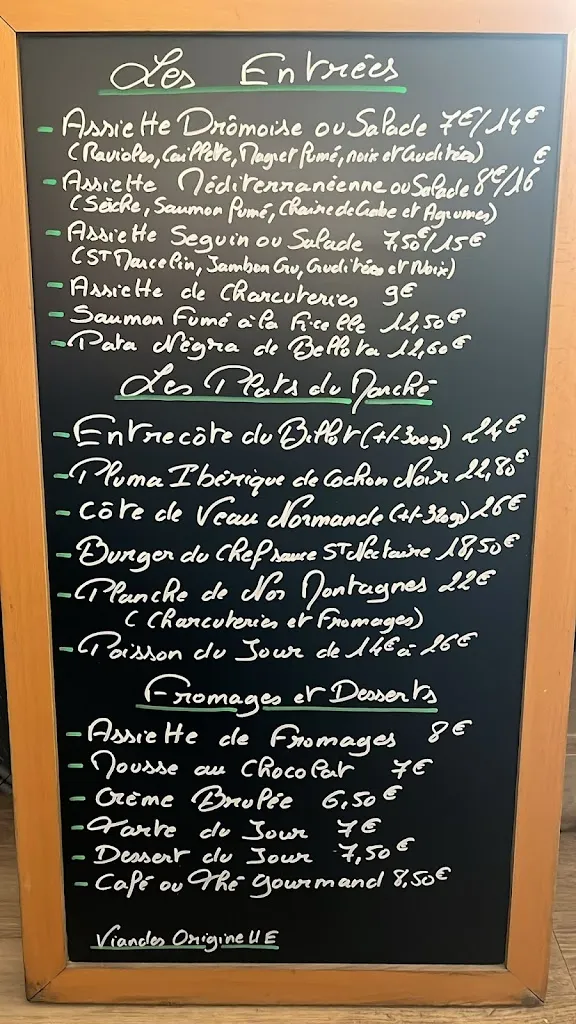 Les Entrées
- Assiette Drômoise ou Salade 7€/14€
(Ravioles, Caillette, Magret fumé, noix et Crudités)
- Assiette Méditerranéenne ou Salade 8€/16€
(Seiche, Saumon fumé, Chair de Crabe et Agrumes)
- Assiette Seguin ou Salade 7,50€/15€
(ST Marcelin, Jambon Cru, Crudités et Noix)
- Assiette de Charcuteries 9€
- Saumon Fumé à la Ficelle 12,50€
- Pata Négra de Bellota 12,60€
Les Plats du Marché
- Entrecôte du Billot (+/-300g) 24€
- Pluma Ibérique de Cochon Noir 22,80€
- Côte de Veau Normande (+/-320g) 26€
- Burger du Chef sauce ST Nectaire 18,50€
- Planche de Nos Montagnes 22€
(Charcuteries et Fromages)
- Poisson du Jour de 14€ à 26€
Fromages et Desserts
- Assiette de Fromages 8€
- Mousse au Chocolat 7€
- Crème Brulée 6,50€
- Tarte du Jour 7€
- Dessert du Jour 7,50€
- Café ou Thé gourmand 8,50€
Viandes Origine UE